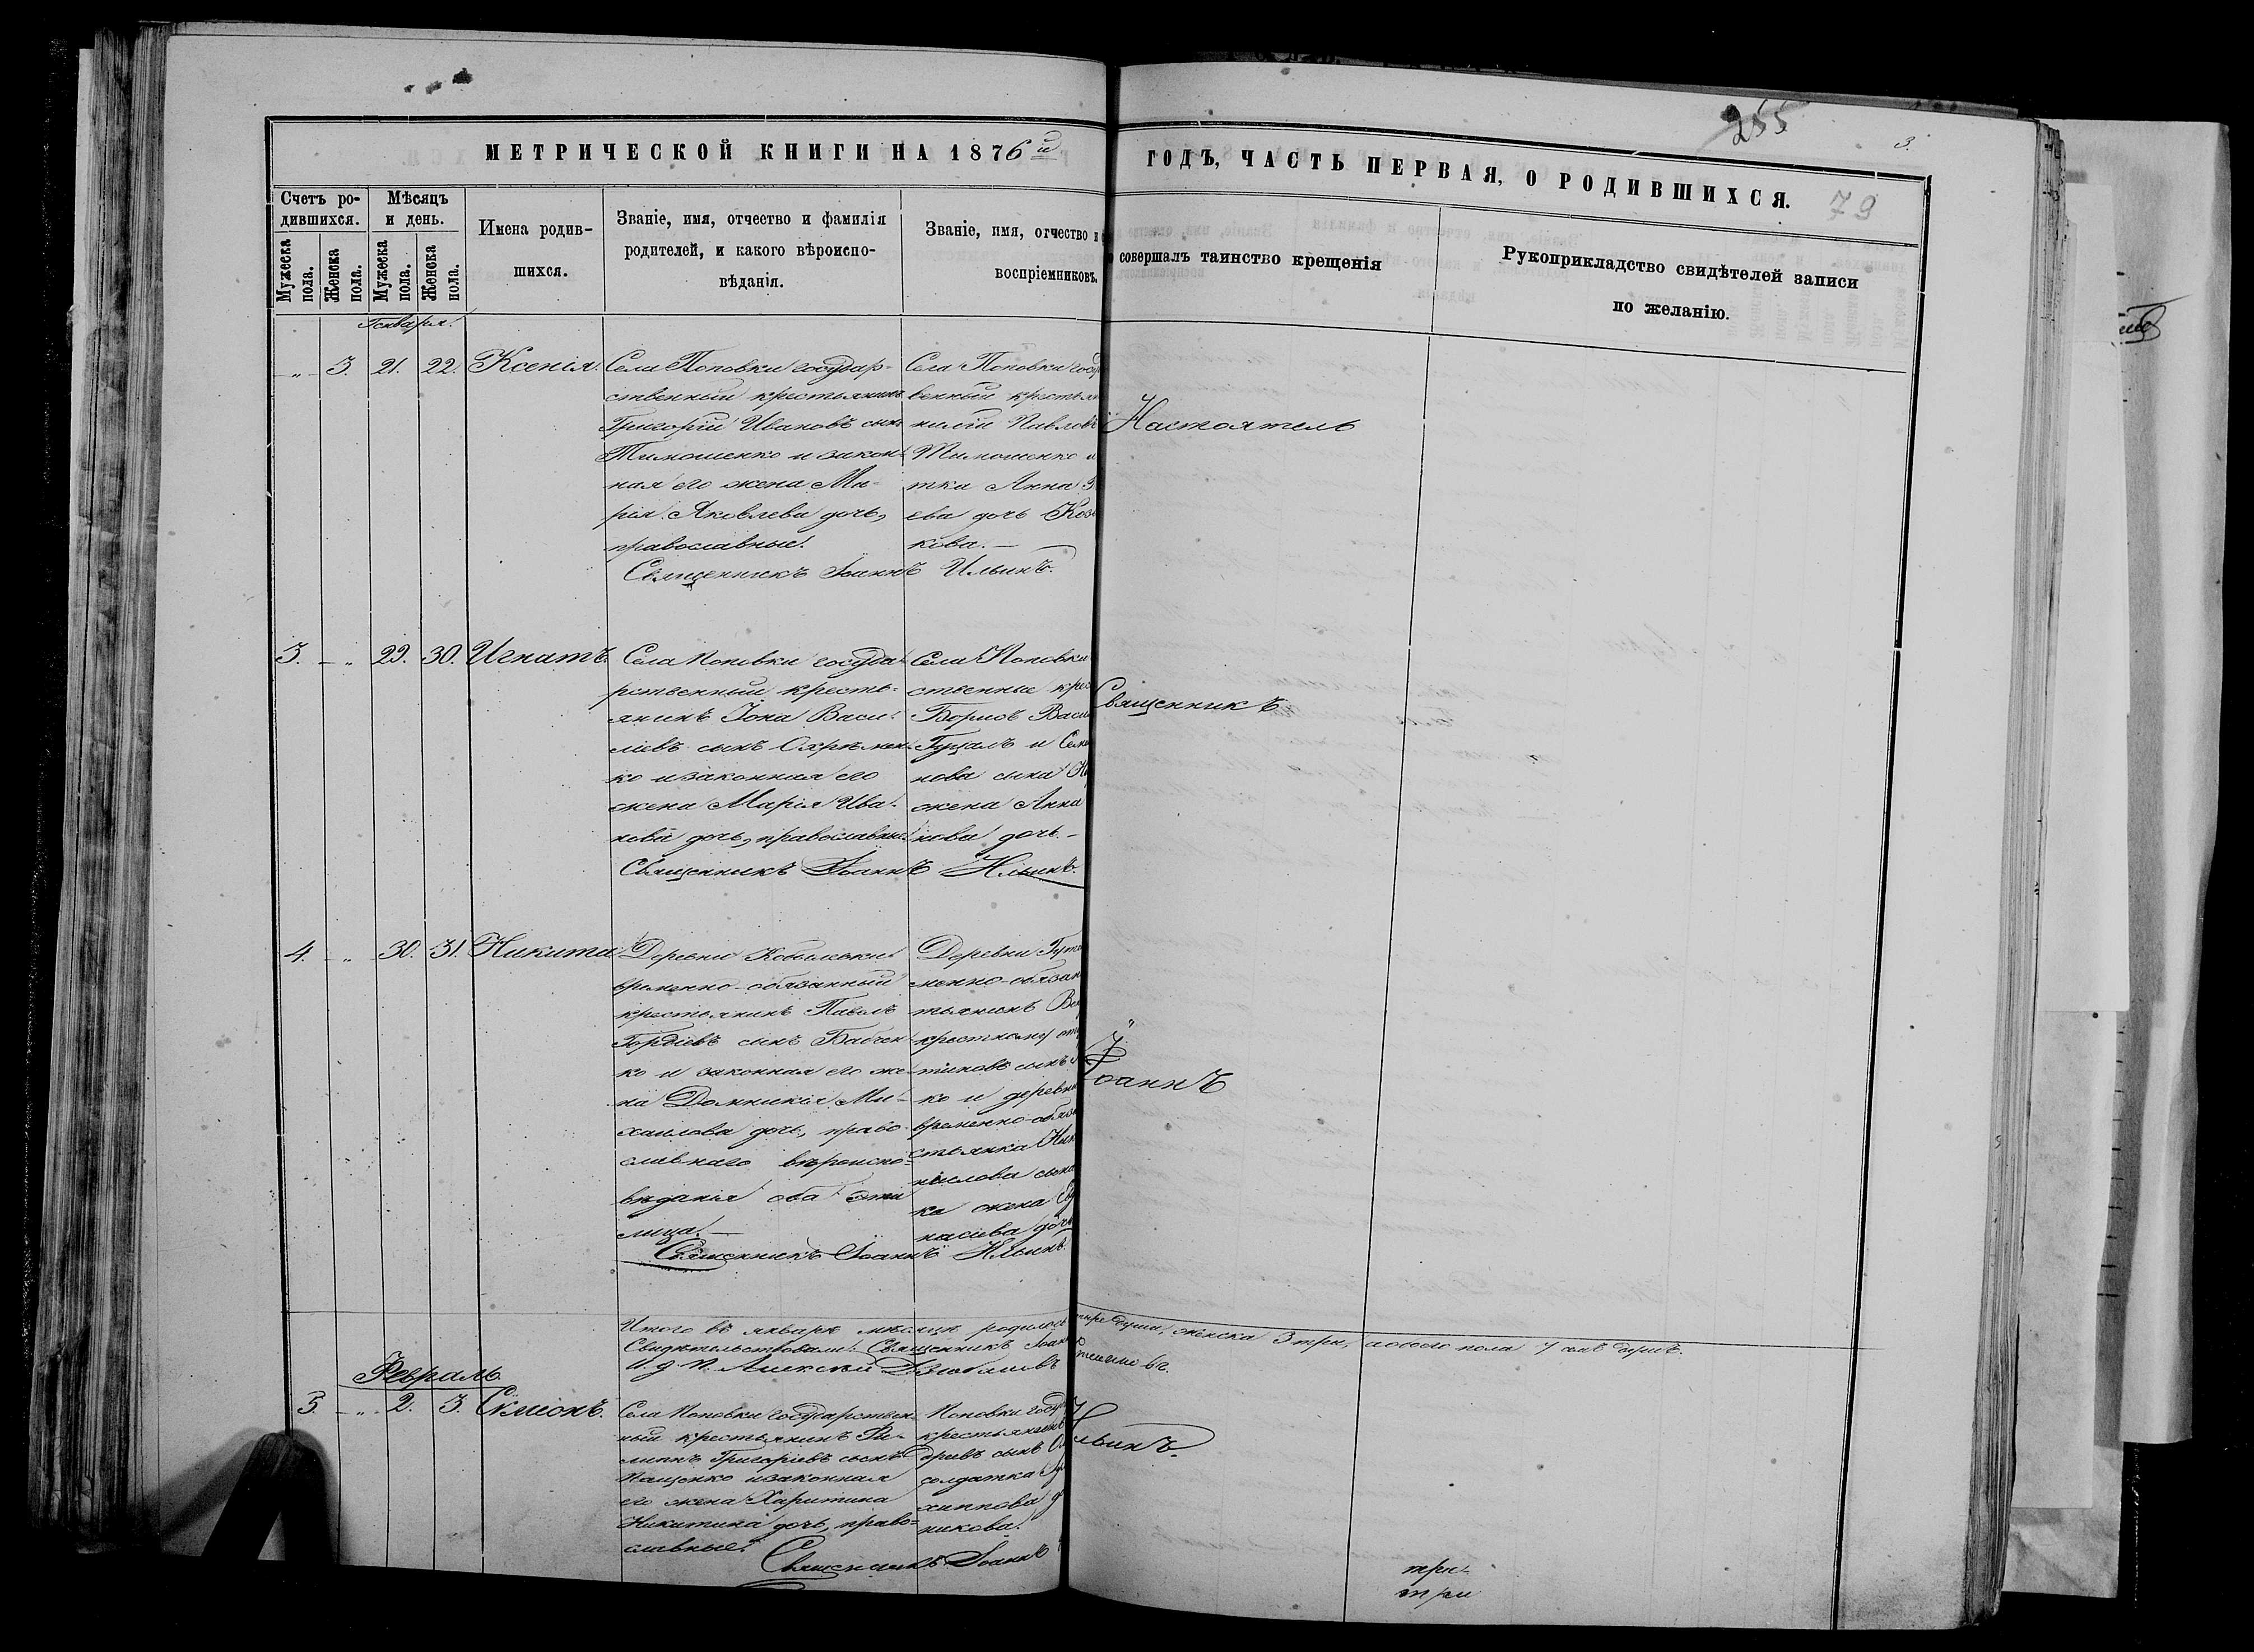 255
3.
МЕТРИЧЕСКОЙ КНИГИ НА 1876й
ГОДЪ, ЧАСТЬ ПЕРВАЯ, О РОДИВШИХСЯ.
79
Счетъ ро-
дившихся.
Мужеска пола.
Женска пола.
Мѣсяцъ
и день.
Мужеска пола.
Женска пола.
Имена родив-
шихся.
Званіе, имя, отчество и фамилія
родителей, и какого вѣроиспо-
вѣданія.
Званіе, имя, отчество и
воспріемниковъ.
совершалъ таинство крещенія
Рукоприкладство свидѣтелей записи
по желанію.
Января.
„ 3. 21. 22. Ксенія.
Села Поповки государ-
ственный крестьянинъ
Григорій Ивановъ сынъ
Тимошенко и закон-
ная его жена Ма-
рія Яковлева дочь,
православные.
Села Поповки госуд
венный крестьян
Павловъ
Тимошенко и
тка Анна
ева дочь Коз
кова. —
Священникъ Іоаннъ Ильинъ.
Настоятель
3. „ 29. 30. Игнатъ.
Села Поповки госуда-
рственный кресть-
янинъ Іона Васи-
ліевъ сынъ Охрѣмен-
ко и законная его
жена Марія Ива-
нова дочь, православные.
Села Поповки
ственные крес
Борисъ Васи
и Семе
нова сына
жена Анна
нова дочь. —
Священникъ Іоаннъ Ильинъ.
Священникъ
4. „ 30. 31. Никита.
Деревни Кобыльки
временно-обязанный
крестьянинъ Павелъ
Гордіевъ сынъ Бабен-
ко и законная его же-
на Домникія Ми-
хаилова дочь, право-
славнаго вѣроиспо-
вѣданія оба эти
лица. —
Деревни
менно-обязан
тьянинъ
крестному
тиновъ сынъ
ко и деревни
временно-обяза
стьянка
сына
ка жена
насіева дочь
Священникъ Іоаннъ Ильинъ.
Іоаннъ
Итого въ январѣ мѣсяцѣ родилось
тыре души, женска 3 три, а обоего пола 7 семь душъ.
Свидѣтельствовали: Священникъ Іоаннъ
И. д. п. Алексѣй
Февраль.
5. „ 2. 3. Сѵмеонъ.
Села Поповки государствен-
ный крестьянинъ Фи-
липпъ Григоріевъ сынъ
Пащенко и законная
его жена Харитина
Никитина дочь, право-
славные.
Поповки госуд
крестьянинъ
сынъ
солдатка
хиппова
никова.
Священникъ Іоаннъ
Ильинъ.
три
три